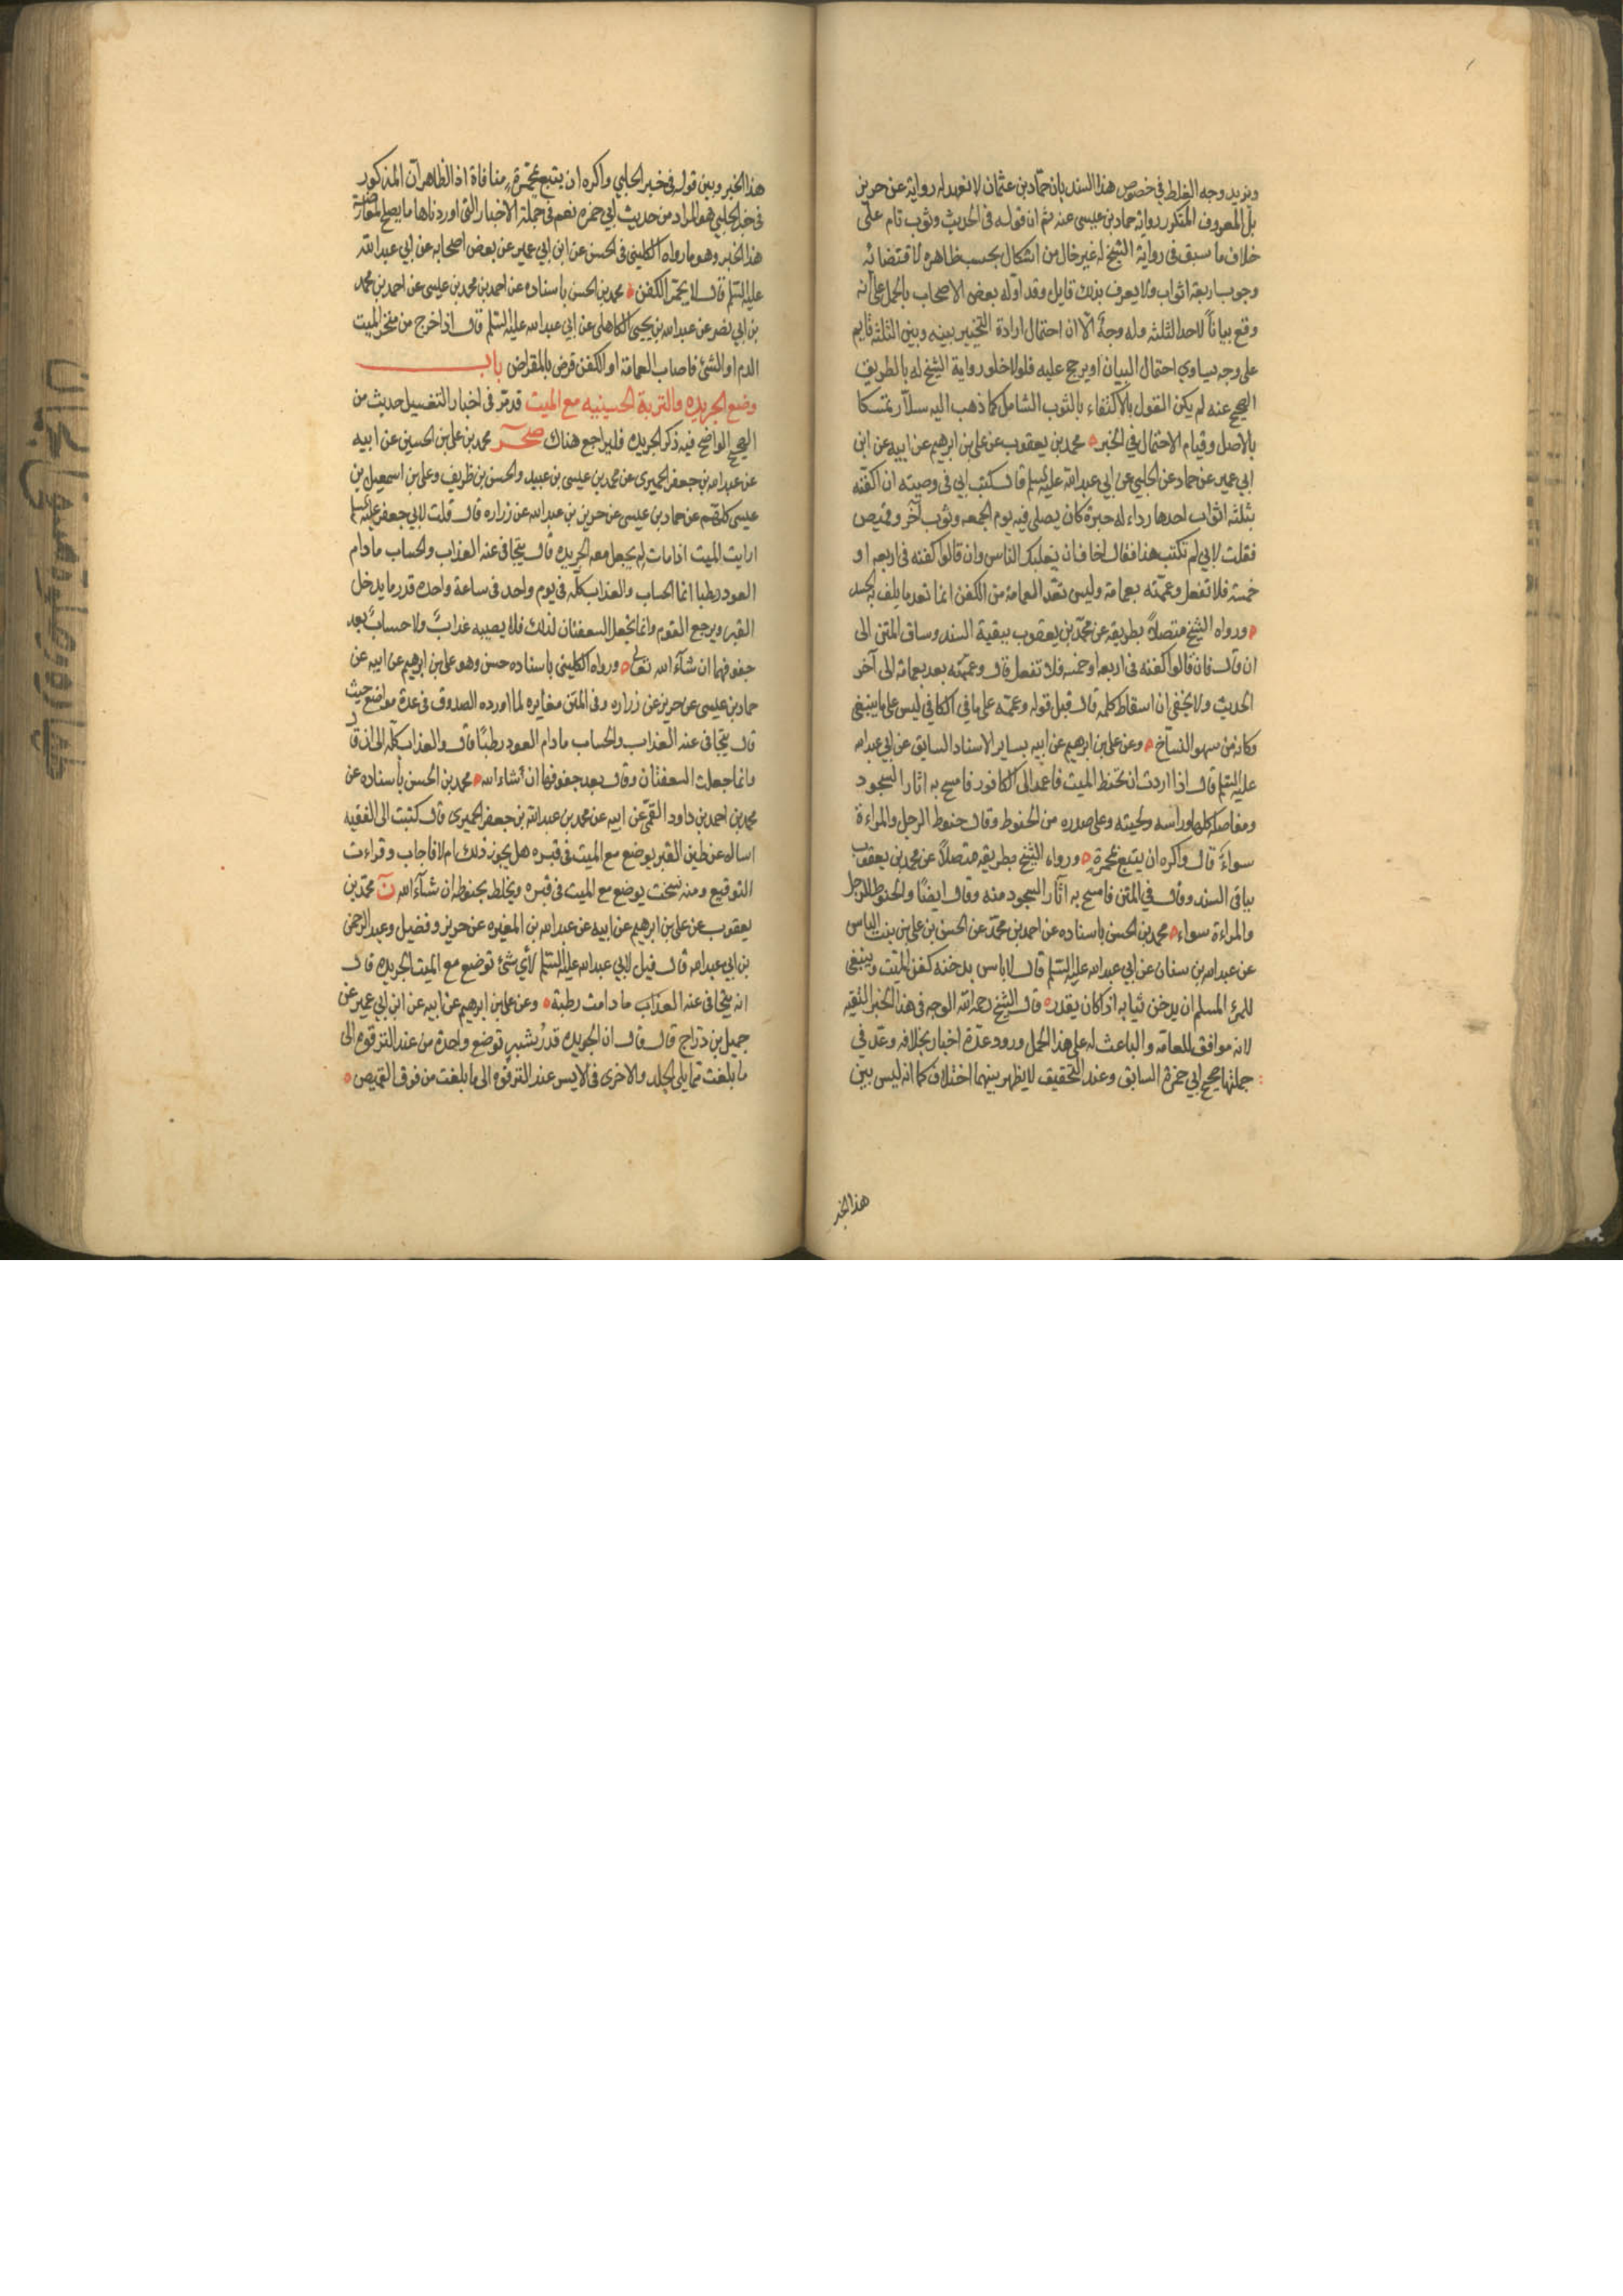 ويزيد وجه الغلط في خصوص هذا السند بان حماد بن عثمان لا نعهد له رواية عن حريز
بل المعروف المتكرر رواية حماد بن عيسى عنه ثم ان قوله في الحديث وثوب تام على
خلاف ما سبق في رواية الشيخ له غير خال من اشكال بحسب ظاهره لاقتضائه
وجوب اربعة اثواب ولا يعرف بذلك قايل وقد اوله بعض الاصحاب بالحمل على انه
وقع بياناً لاحد الثلثه وله وجهٌ الّا ان احتمال ارادة التخيير بينه وبين الثلثة قايم
على وجه يساوي احتمال البيان او يرجح عليه فلولا خلو رواية الشيخ له بالطريق
الصحيح عنه لم يكن القول بالاكتفاء بالثوب الشامل كما ذهب اليه سلّار تمسكا
بالاصل وقيام الاحتمال في الخبر محمد بن يعقوب عن علي بن ابرهيم عن ابيه عن ابن
ابي عمير عن حماد عن الحلبي عن ابي عبد الله عليه السلم قال كتب ابي في وصيته ان اكفنه
بثلثه اثواب احدها رداء له حبرة كان يصلي فيه يوم الجمعه وثوب آخر وقميص
فقلت لابي لم تكتب هذا فقال اخاف ان يغلبك الناس وان قالوا كفنه في اربعه او
خمسة فلا تفعل وعممّه بعمامة وليس تعّد العمامة من الكفن انما نعد ما يلف به الجسد
ورواه الشيخ متصلاً بطريقه عن محمّد بن يعقوب ببقية السند وساق المتن الى
ان قال فان قالوا كفنه في اربعة او خمسه فلا تفعل قال وعمّمه بعد بعمامة الى آخر
الحديث ولا يخفى ان اسقاط كلمة قال قبل قوله وعممه على ما في الكافي ليس على ما ينبغي
وكانه من سهو النسّاخ وعن علي بن ابرهيم عن ابيه بساير الاسناد السابق عن ابي عبد الله
عليه السلم قال اذا اردت ان تحنط الميت فاعمد الى الكافور فامسح به اثار السجود
ومفاصله كلها وراسه ولحيته وعلى صدره من الحنوط وقال حنوط الرجل والمراءة
سواءً قال واكره ان يتبع بمجمرةٍ ورواه الشيخ بطريقه متصلاً عن محمد بن يعقوب
بباقي السند وقال في المتن فامسح به آثار السجود منه وقال ايضًا والحنوط للرجل
والمراءة سواء محمد بن الحسن باسناده عن احمد بن محمّد عن الحسن بن علي بن بنت الياس
عن عبد الله بن سنان عن ابي عبد الله عليه السلم قال لا باس بدخنه كفن الميّت وينبغي
للمرء المسلم ان يدخن ثيابه اذا كان يقدر قال الشيخ رحمه الله الوجه في هذا الخبر التقيه
لانه موافق للعامة والباعث له على هذا الحمل ورود عدّة اخبار بخلافه وعدّ في
جملتها صحيح ابي حمزة السابق وعند التحقيق لا يظهر بينهما اختلاف كما انه ليس بين
هذا الخبر
هذا الخبر وبين قوله في خبر الحلبي واكره ان يتبع بمجمرةٍ منافاة اذ الظاهر ان المذكور
في خبر الحلبي هو المراد من حديث ابي حمزه نعم في جملة الاخبار التي اوردناها ما يصلح لمعارضة
هذا الخبر وهو ما رواه الكليني في الحسن عن ابن ابي عمير عن بعض اصحابه عن ابي عبد الله
عليه السلم قال لا يجمّر الكفن محمد بن الحسن باسناده عن احمد بن محمد بن عيسى عن احمد بن محمد
بن ابي نصر عن عبد الله بن يحيى الكاهلي عن ابي عبد الله عليه السلم قال اذا خرج من منخر الميت
الدم او الشئ فاصاب العمامة او الكفن قرض بالمقراض باب
وضع الجريده والتربة الحسينيه مع الميت قد مرّ في اخبار التغسيل حديث من
الصحيح الواضح فيه ذكر الجريده فليراجع هناك صحر محمد بن علي بن الحسين عن ابيه
عن عبد الله بن جعفر الحميري عن محمد بن عيسى بن عبيد والحسن بن ظريف وعلي بن اسمعيل بن
عيسى كلهم عن حماد بن عيسى عن حريز بن عبد الله عن زراره قال قلت لابي جعفر عليه السلم
ارايت الميت اذا مات لم يجعل معه الجريده قال يتجافى عنه العذاب والحساب ما دام
العود رطبا انما الحساب والعذاب كله في يوم واحد في ساعة واحدة قدر ما يدخل
القبر ويرجع القوم وانما تجعل السعفتان لذلك فلا يصيبه عذابٌ ولا حسابٌ بعد
جفوفهما ان شآء الله تعالى ورواه الكليني باسناده حسن وهو علي بن ابرهيم عن ابيه عن
حماد بن عيسى عن حريز عن زراره وفي المتن مغايره لما اورده الصدوق في عدة مواضع حيث
قال يتجافى عنه العذاب والحساب ما دام العود رطبًا قال والعذاب كله الى ان قال
وانما جعلت السعفتان وقال بعد جفوفهما ان شاء الله محمد بن الحسن باسناده عن
محمد بن احمد بن داود القمّي عن ابيه عن محمد بن عبد الله بن جعفر الحميري قال كتبت الى الفقيه
اساله عن طين القبر يوضع مع الميت في قبره هل يجوز ذلك ام لا فاجاب وقراءت
التوقيع ومنه نسخت يوضع مع الميت في قبره ويخلط بحنوطه ان شآء الله ن محمّد بن
يعقوب عن علي بن ابرهيم عن ابيه عن عبد الله بن المغيره عن حريز وفضيل وعبد الرحمن
بن ابي عبد الله قال قيل لابي عبد الله عليه السلم لأي شئ توضع مع الميت الجريده قال
انه يتجافى عنه العذاب ما دامت رطبة وعن علي بن ابرهيم عن ابيه عن ابن ابي عمير عن
جميل بن درّاج قال قال ان الجريده قدرُ شبرٍ توضع واحدة من عند الترقوه الى
ما بلغت مما يلي الجلد والاخرى في الايسر عند الترقوه الى ما بلغت من فوق القميص